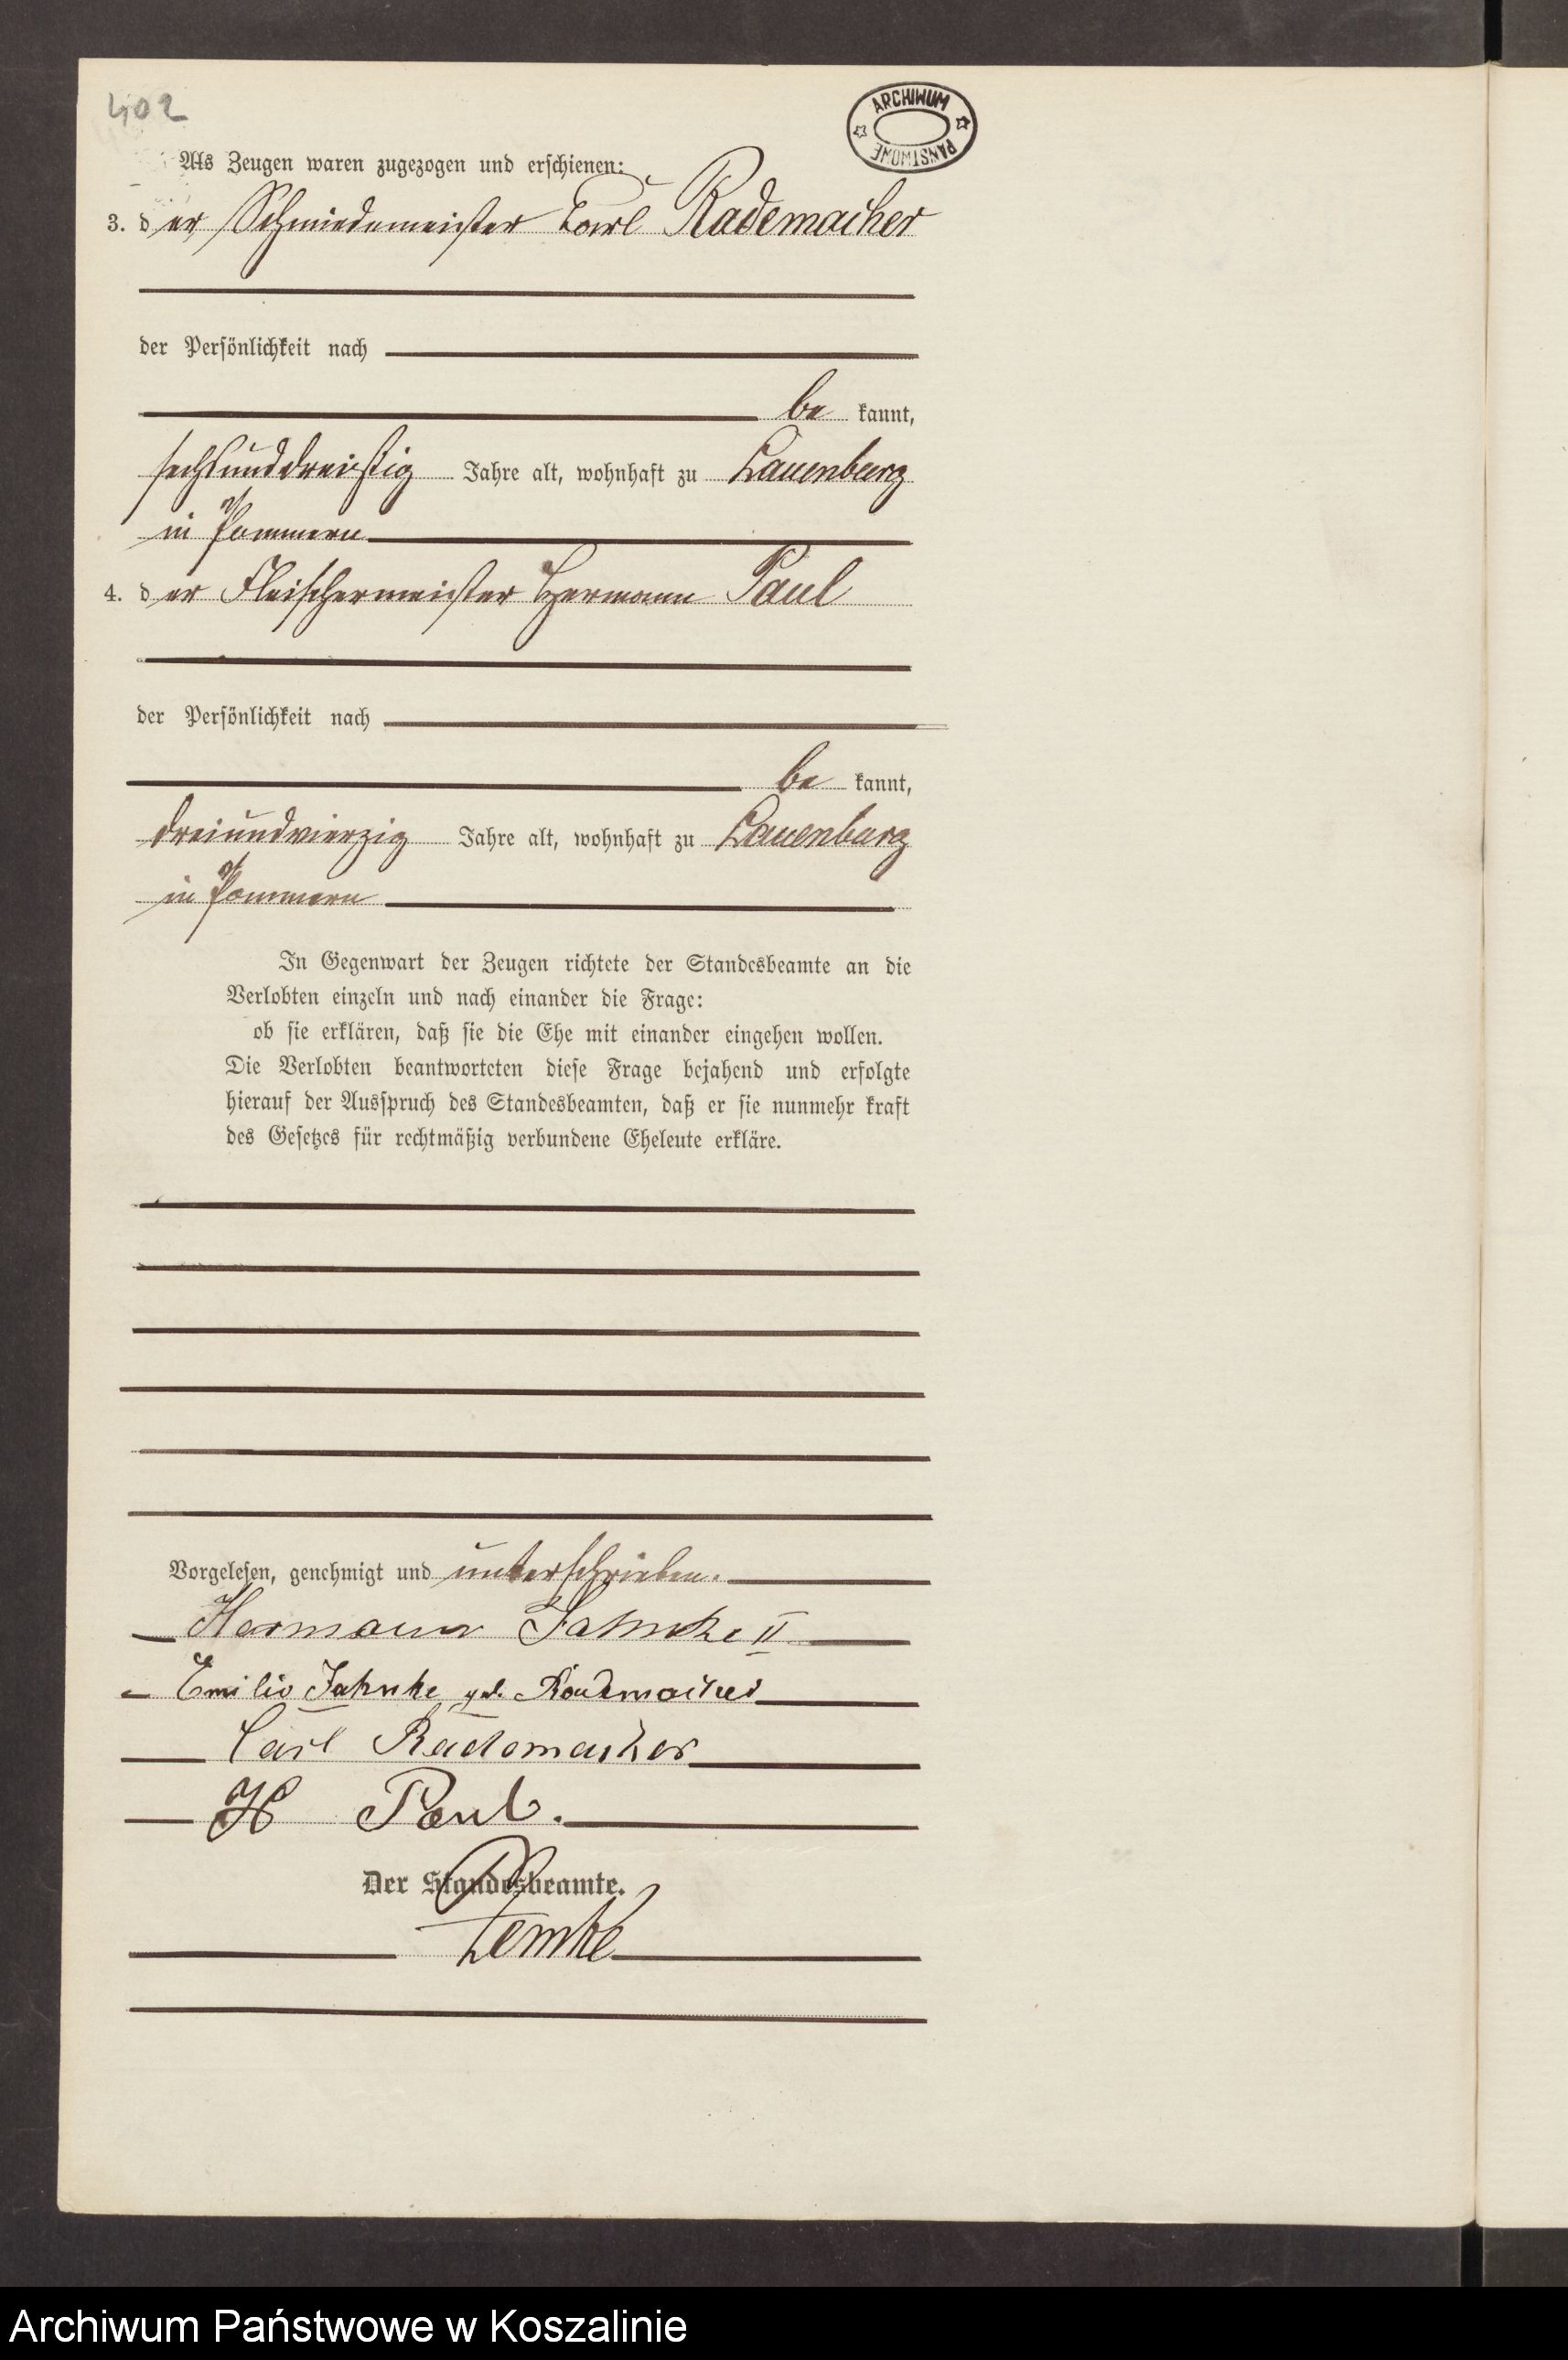 402
ARCHIWUM PAŃSTWOWE
Als Zeugen waren zugezogen und erschienen:
3. der Schmiedemeister Carl Rademacher
der Persönlichkeit nach
be kannt,
sechsunddreißig Jahre alt, wohnhaft zu Lauenburg
in Pommern
4. der Fleischermeister Hermann Paul
der Persönlichkeit nach
be kannt,
dreiundvierzig Jahre alt, wohnhaft zu Lauenburg
in Pommern
In Gegenwart der Zeugen richtete der Standesbeamte an die
Verlobten einzeln und nach einander die Frage:
ob sie erklären, daß sie die Ehe mit einander eingehen wollen.
Die Verlobten beantworteten diese Frage bejahend und erfolgte
hierauf der Ausspruch des Standesbeamten, daß er sie nunmehr kraft
des Gesetzes für rechtmäßig verbundene Eheleute erkläre.
Vorgelesen, genehmigt und unterschrieben.
Hermann Jahnke II
Emilie Jahnke geb. Rademacher
Carl Rademacher
H Paul.
Der Standesbeamte.
Lemke
Archiwum Państwowe w Koszalinie